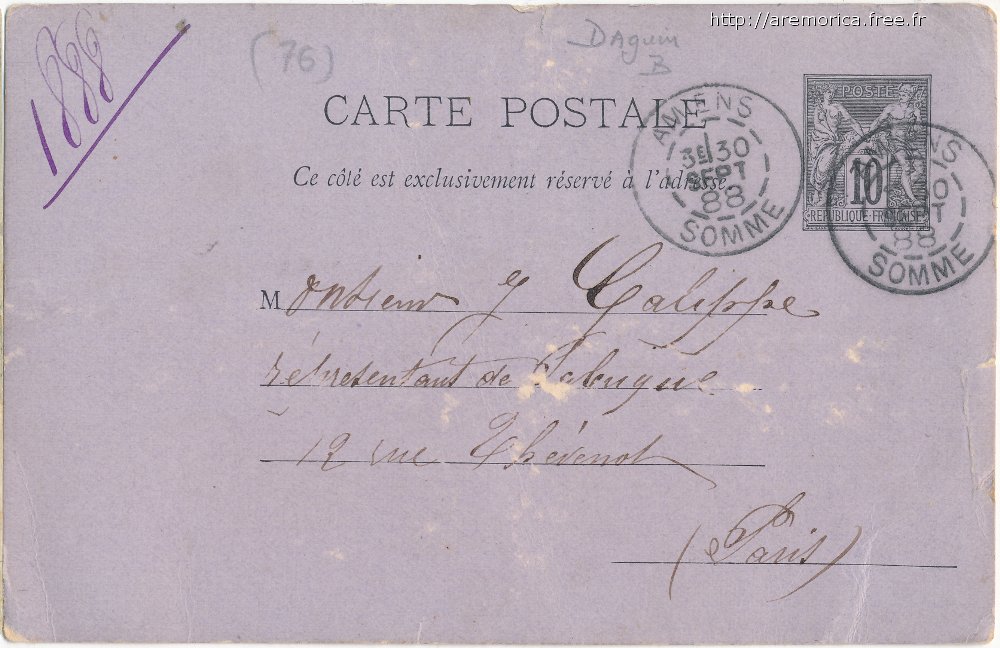 http://aremorica.free.fr
1888
(76)
Daguin
B
CARTE POSTALE
Ce côté est exclusivement réservé à l'adresse.
AMIENS
3E 30
SEPT
88
SOMME
POSTE
10
REPUBLIQUE FRANÇAISE
AMIENS
30
SEPT
88
SOMME
Monsieur J Calippe
réprésentant de Fabrique
12 rue Thévenot
(Paris)